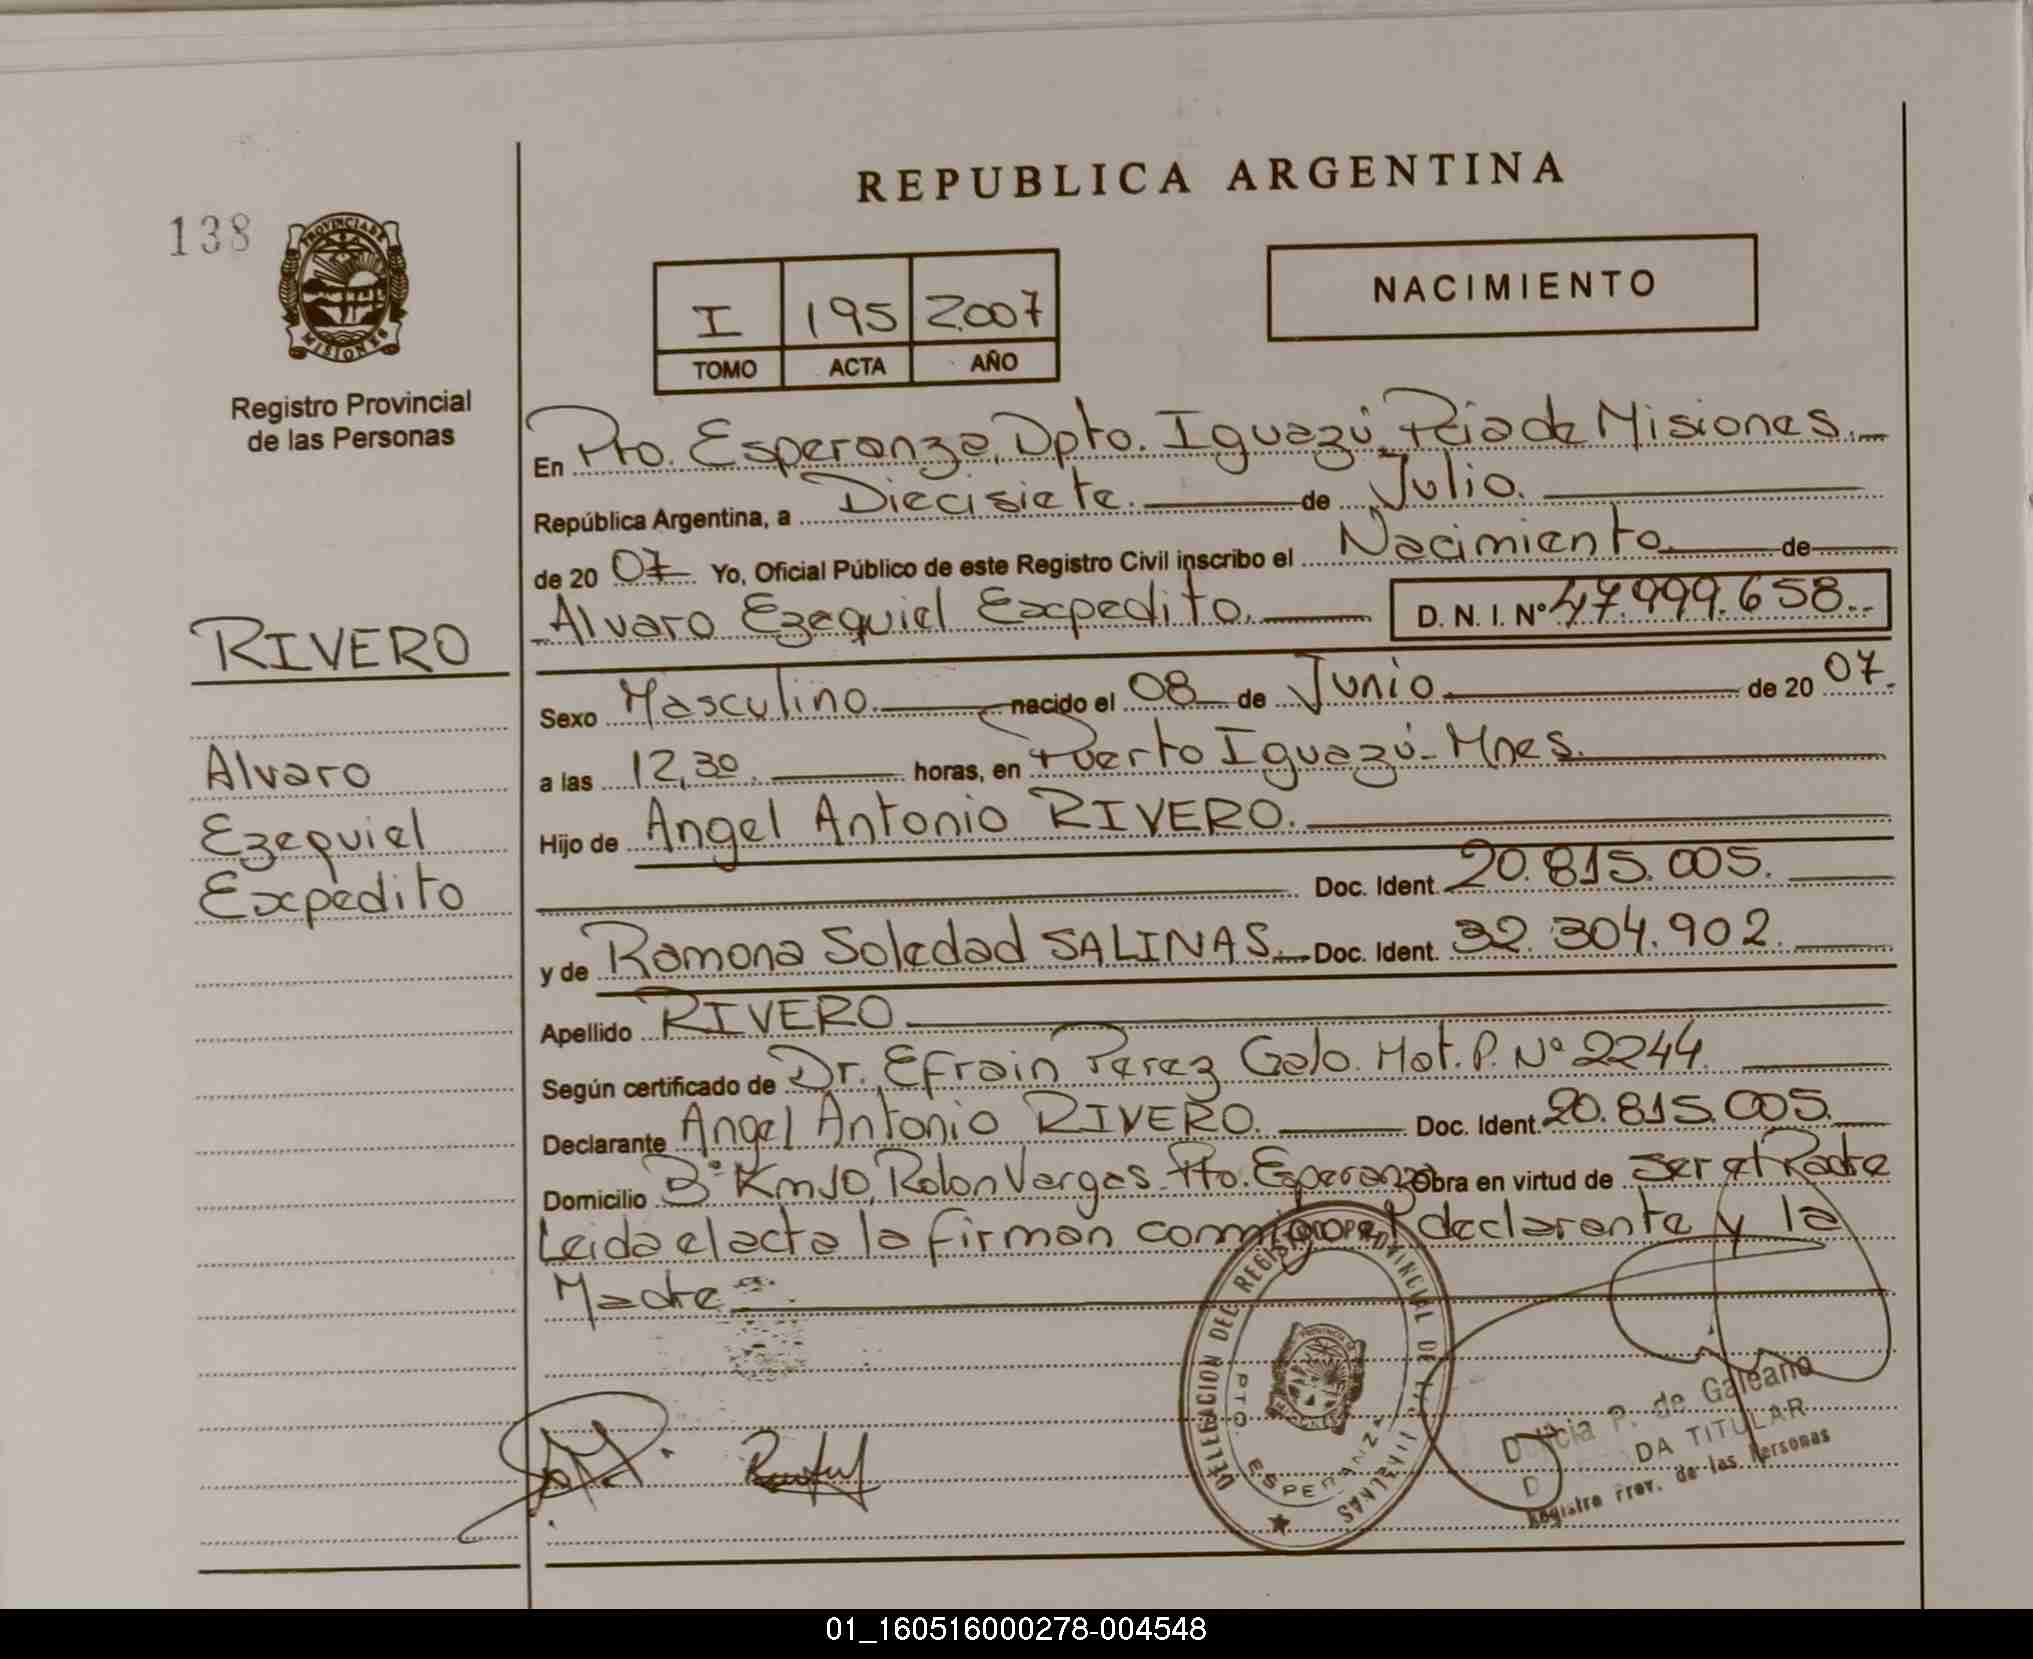 REPUBLICA ARGENTINA
138
PROVINCIA DE
MISIONES
Registro Provincial
de las Personas
I 195 2007
TOMO ACTA AÑO
NACIMIENTO
En Pto. Esperanza, Dpto. Iguazú, Pcia de Misiones.
República Argentina, a Diecisiete. de Julio.
de 20 07 Yo, Oficial Público de este Registro Civil inscribo el Nacimiento de
Alvaro Ezequiel Expedito. D. N. I. Nº 47.999.658.
RIVERO
Alvaro
Ezequiel
Expedito
Sexo Masculino. nacido el 08 de Junio de 20 07.
a las 12,30. horas, en Puerto Iguazú - Mnes.
Hijo de Angel Antonio RIVERO.
Doc. Ident. 20.815.005.
y de Ramona Soledad SALINAS. Doc. Ident. 32.304.902.
Apellido RIVERO
Según certificado de Dr. Efrain Perez Galo. Mat. P. Nº 2244.
Declarante Angel Antonio RIVERO. Doc. Ident. 20.815.005.
Domicilio Bº Km 10, Rolon Vargas - Pto. Esperanza Obra en virtud de ser el Padre
Leida el acta la firman conmigo el declarante y la
Madre
DELEGACION DEL REGISTRO PROVINCIAL DE LAS PERSONAS
PTO. ESPERANZA
P. de Galeano
DA TITULAR
Registro Prov. de las Personas
01_160516000278-004548